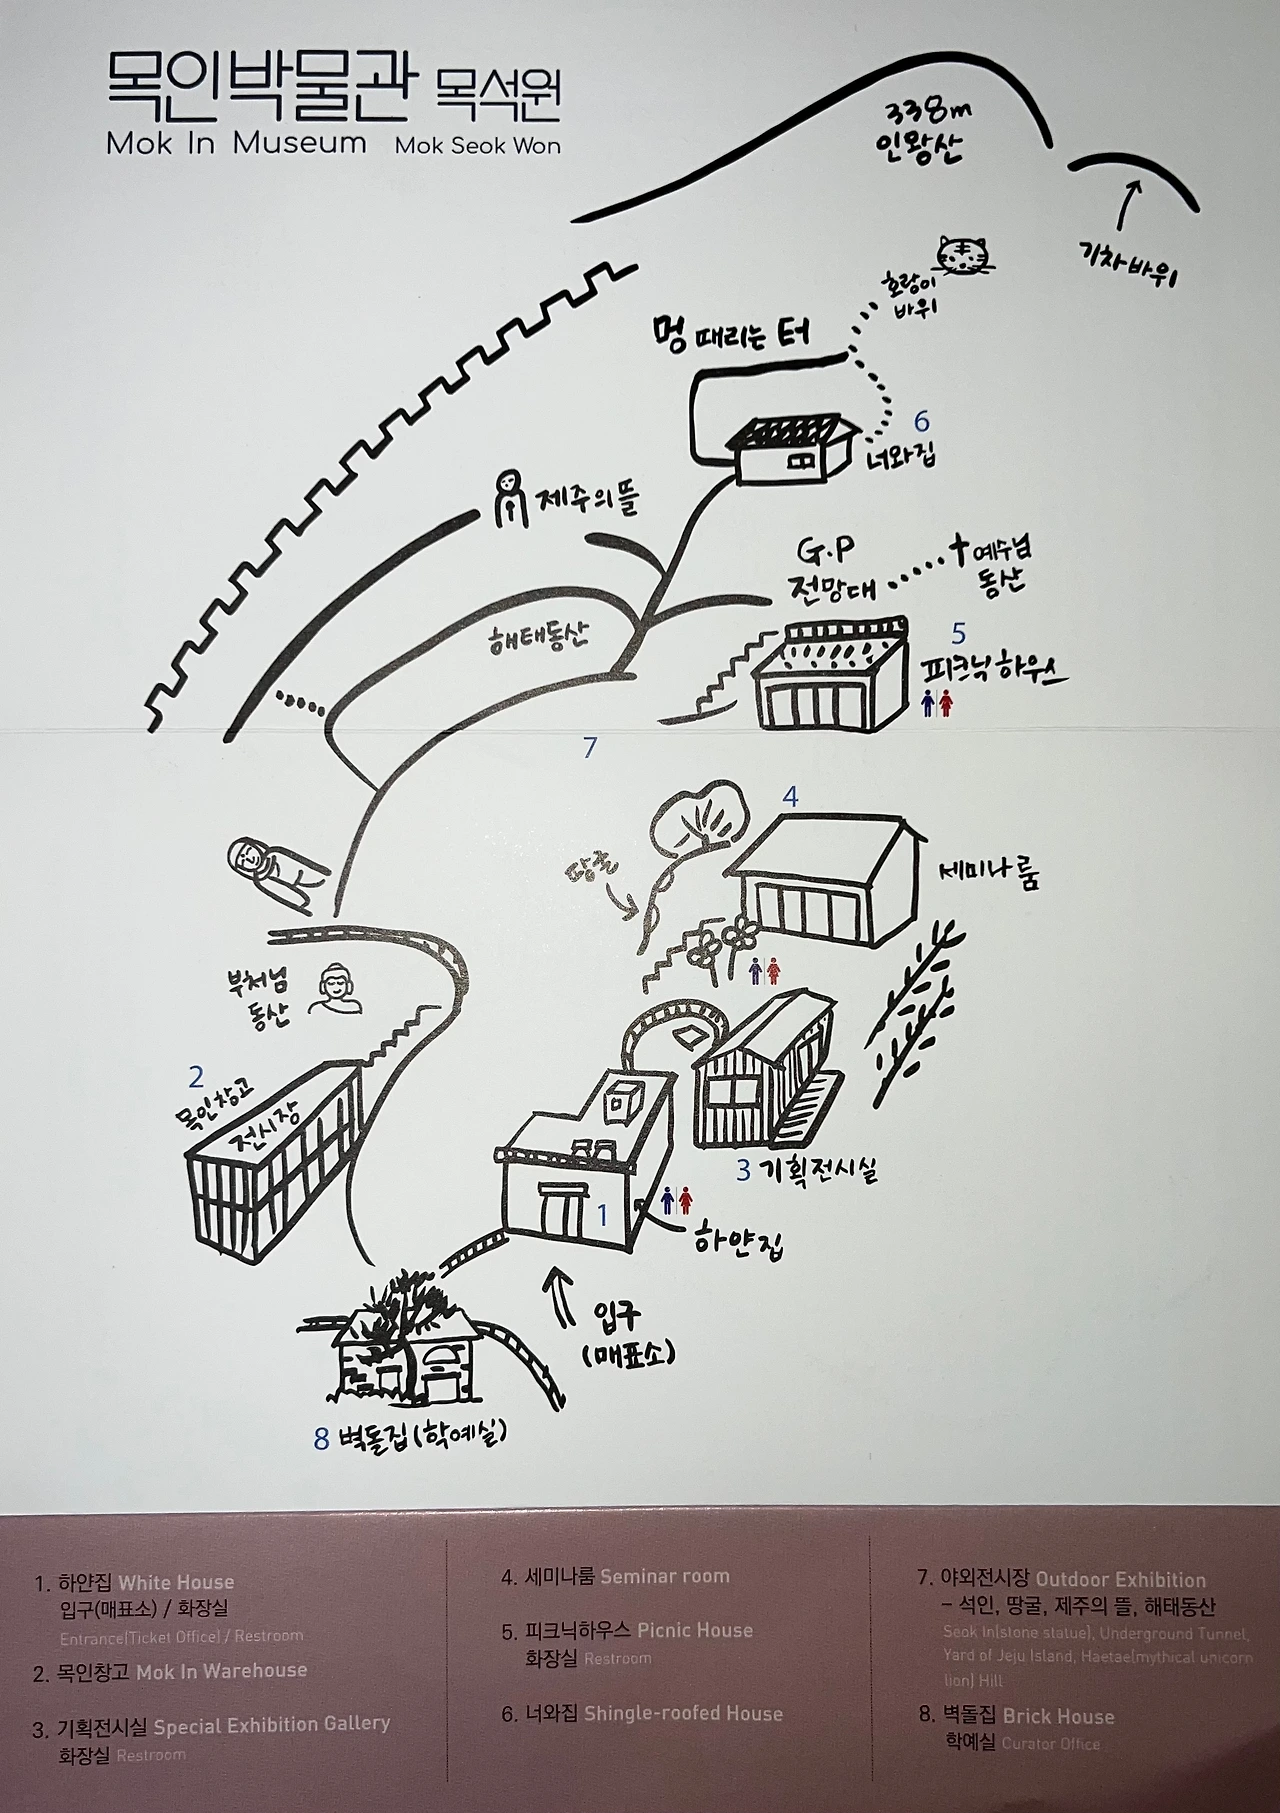 목인박물관 목석원
Mok In Museum Mok Seok Won
338m
인왕산
기차바위
호랑이
바위
멍 때리는 터
6
너와집
제주의 뜰
G.P
전망대
예수님
동산
해태동산
5
피크닉하우스
7
4
땅굴
세미나룸
부처님
동산
2
목인창고
전시장
3 기획전시실
1
하얀집
입구
(매표소)
8 벽돌집(학예실)
1. 하얀집 White House
입구(매표소) / 화장실
Entrance(Ticket Office) / Restroom
2. 목인창고 Mok In Warehouse
3. 기획전시실 Special Exhibition Gallery
화장실 Restroom
4. 세미나룸 Seminar room
5. 피크닉하우스 Picnic House
화장실 Restroom
6. 너와집 Shingle-roofed House
7. 야외전시장 Outdoor Exhibition
– 석인, 땅굴, 제주의 뜰, 해태동산
Seok In(stone statue), Underground Tunnel,
Yard of Jeju Island, Haetae(mythical unicorn
lion) Hill
8. 벽돌집 Brick House
학예실 Curator Office